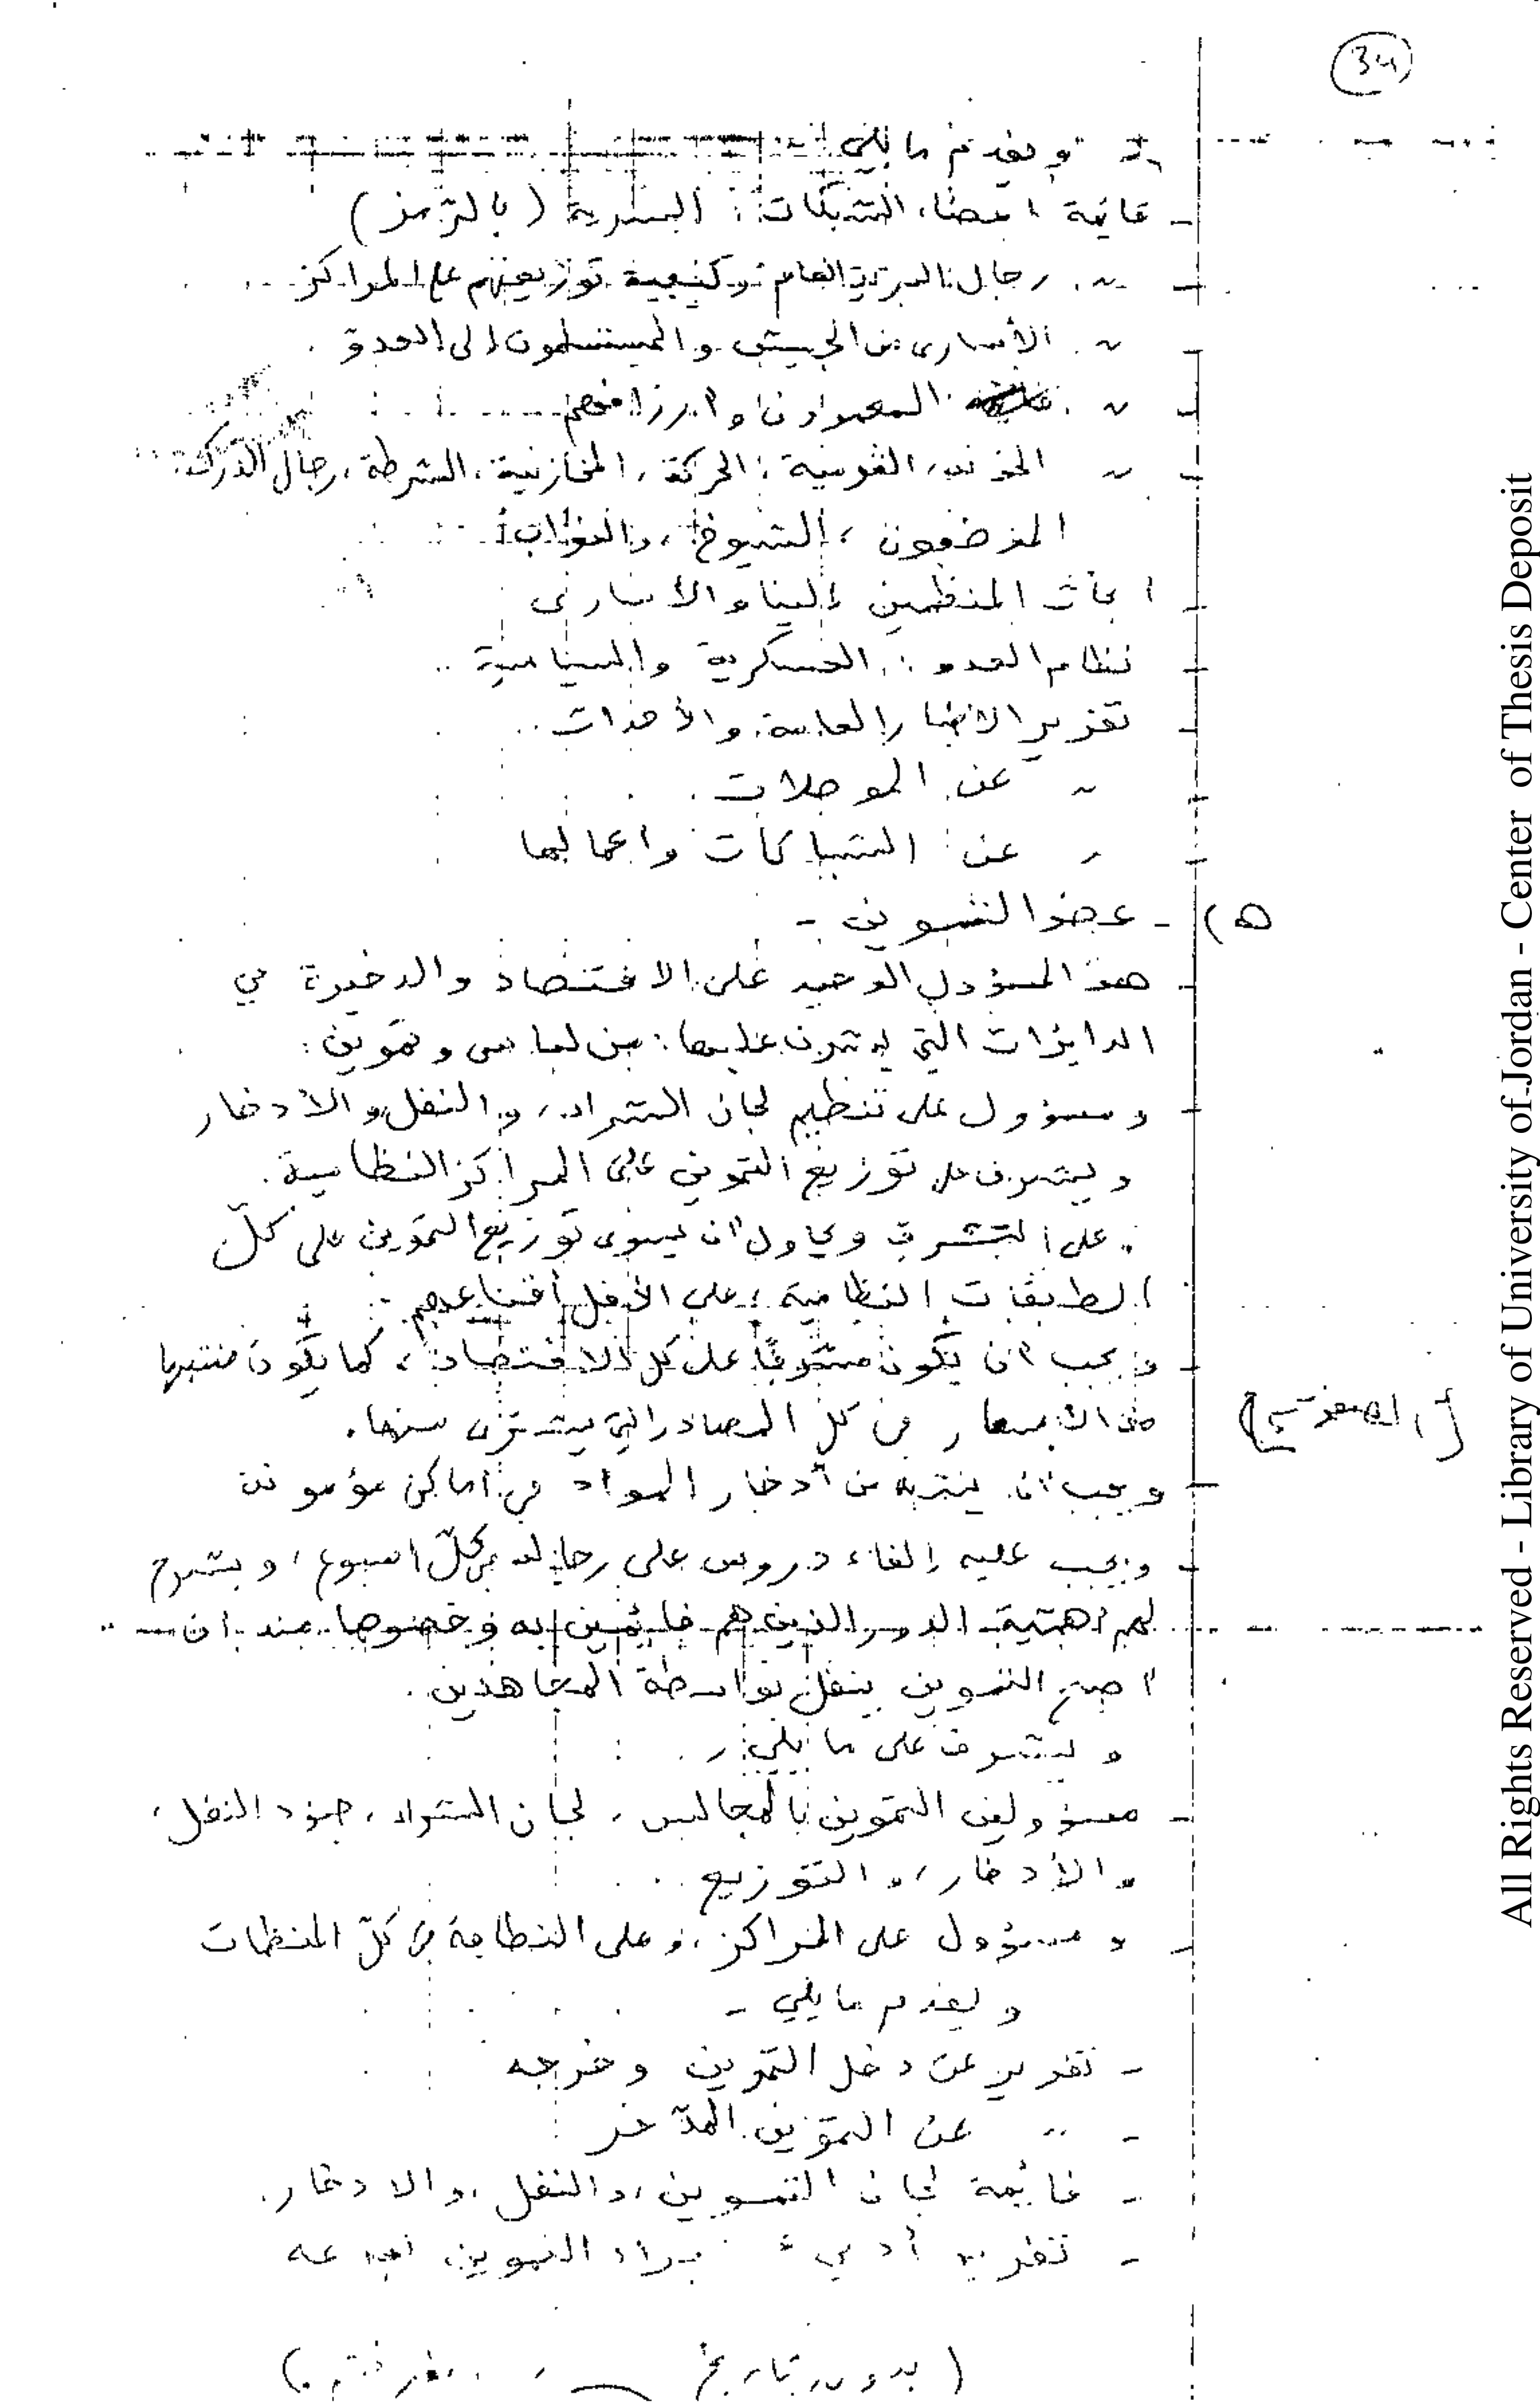 34
- ويقدم ما يلي :
- قائمة اعضاء الشبكات : السرية (بالترمز)
- ~ رجال البريد العام وكيفية توزيعهم على المراكز
- ~ الأسارى من الجيش والمستسلمون الى العدو .
- ~ المعمرون وارزاقهم
- ~ الخونة، القومية : الحركة، المخازنية، الشرطة، رجال الدرك
الموظفون ، الشيوخ ، والنواب
- ابحاث المنظمين إلينا والأسارى
- نظام العدو : العسكرية والسياسية ..
- تقرير الاخبار العامة والأحداث ..
- ~ عن الموصلات .
- ~ عن الشباكات واعمالها
5) - عضو التموين -
- هو المسؤول الوحيد على الاقتصاد والدخيرة في
الدايرات التي يشرف عليها : من لباس وتموين :
- ومسؤول على تنظيم لجان الشراء، والنقل والادخار
ويشرف على توزيع التموين على المراكز النظامية .
ويحاول ان يسوى توزيع التموين على كلّ
الطبقات النظامية ، على الأقل أقناعهم
- ويجب ان يكون على كل الاقتصاد ، كما يكون منتبها
من الأسعار في كل المصادر التي يشترى منها .
[الصفحة]
- ويجب ان ينتبه من أدخار المواد في اماكن مؤمونة
- ويجب عليه إلقاء دروس على رجاله في كلّ اسبوع ، ويشرح
لهم اهمّية الدور الذين هم قائمين به وخصوصا منذ ان
اصبح التموين ينقل بواسطة المجاهدين .
ويشرف على ما يلي :
- مسؤولين التموين بالمجالس ، لجان الشراء ، جنود النقل ،
والأدخار ، والتوزيع ..
- ومسؤول على المراكز ، وعلى النظامة في كلّ المنظمات
ويقدم ما يلي -
- تقرير عن دخل التموين وخرجه
- ~ عن التموين المدّخر
- قائمة لجان التموين ، والنقل ، والادخار .
- تقرير أدبي التموين
(بدون تاريخ
All Rights Reserved - Library of University of Jordan - Center of Thesis Deposit